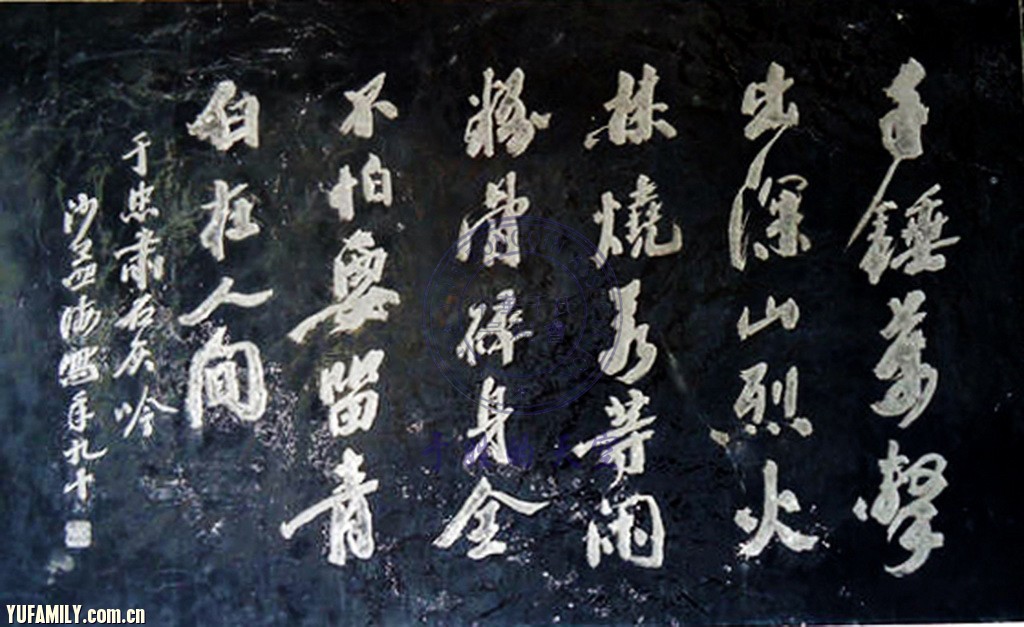 手錘萬擊
出深山烈火
焚燒若等閑
粉骨碎身全
不怕要留青
白在人間
于忠肅石灰吟
沙孟海寫年九十
YUFAMILY.com.cn